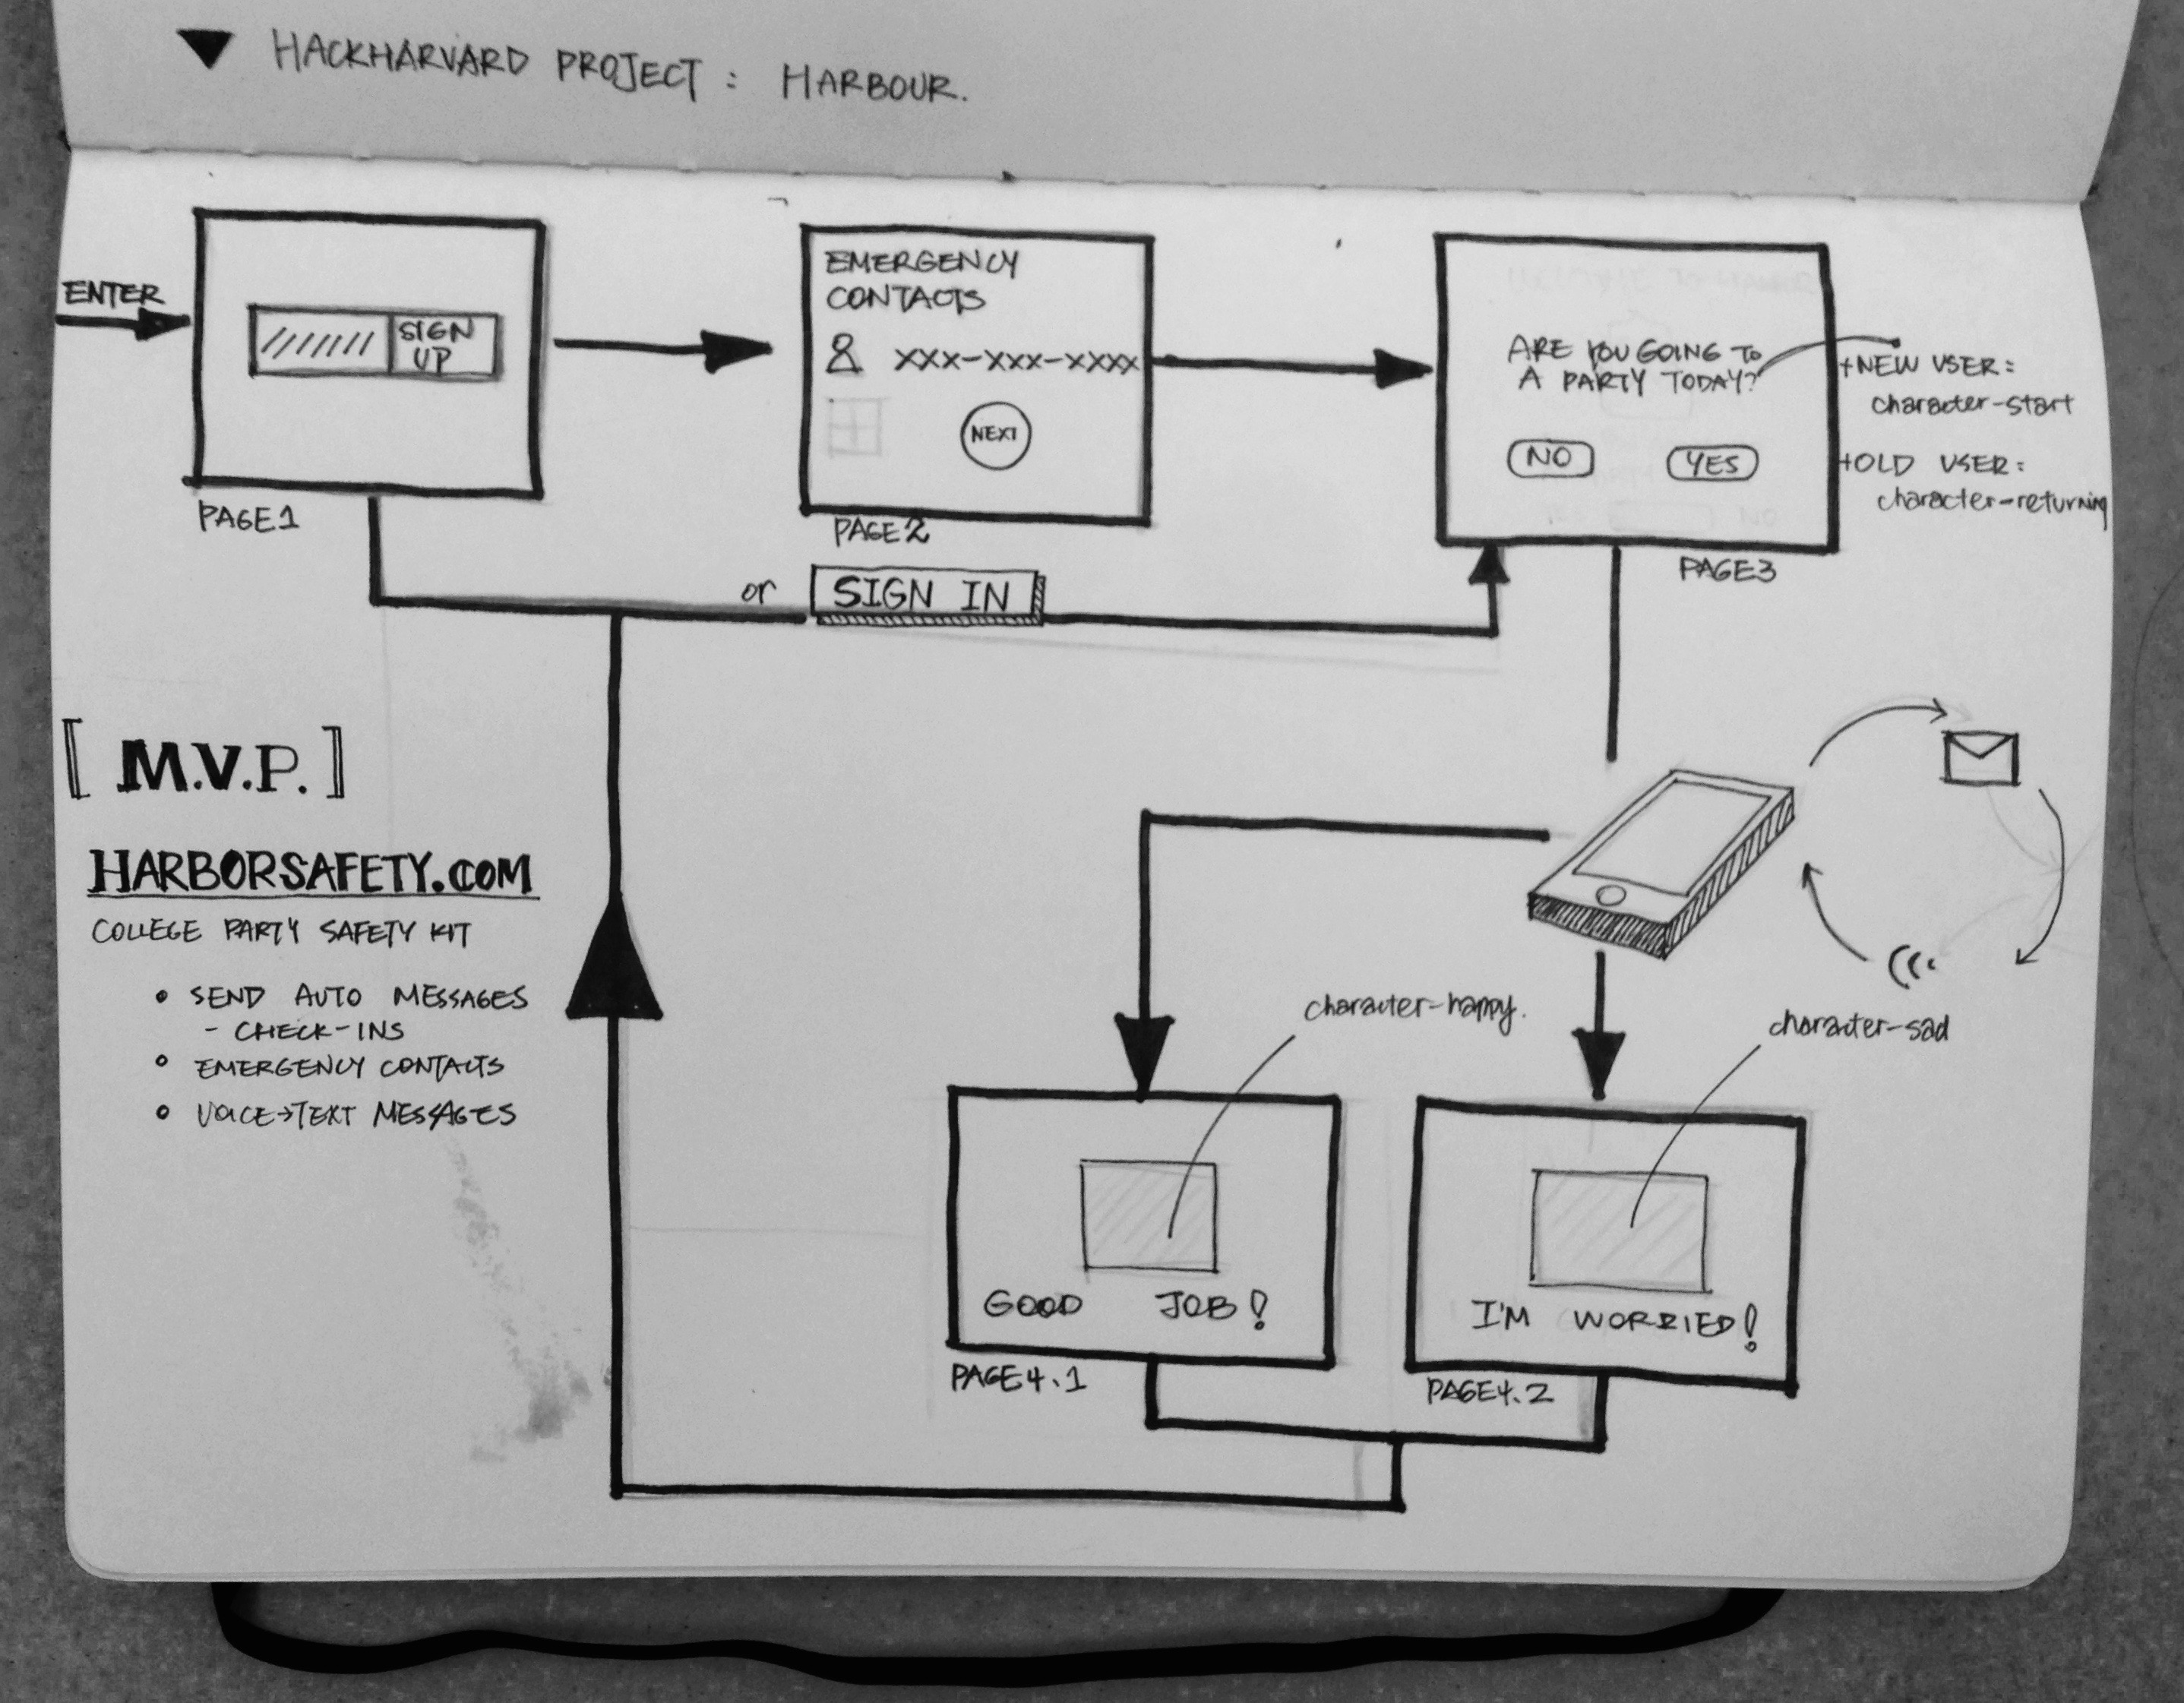 ▼ HACKHARVARD PROJECT : HARBOUR.
ENTER
SIGN
UP
PAGE1
EMERGENCY
CONTACTS
XXX-XXX-XXXX
NEXT
PAGE2
ARE YOU GOING TO
A PARTY TODAY?
NO
YES
PAGE3
+NEW USER:
character-start
+OLD USER:
character-returning
or
SIGN IN
[ M.V.P. ]
HARBORSAFETY.COM
COLLEGE PARTY SAFETY KIT
• SEND AUTO MESSAGES
- CHECK-INS
• EMERGENCY CONTACTS
• VOICE→TEXT MESSAGES
character-happy.
character-sad
GOOD JOB!
PAGE4.1
I'M WORRIED!
PAGE4.2